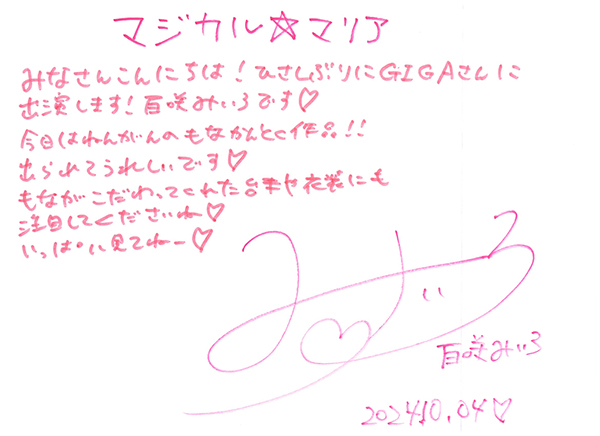 マジカル☆マリア
みなさんこんにちは!ひさしぶりにGIGAさんに
出演します!百咲みいろです♡
今日はねんがんのもなかんとく作品!!
出られてうれしいです♡
もながこだわってくれた台本や衣装にも
注目してくださいね♡
いっぱい見てねー♡
みいろ
百咲みいろ
2024.10.04♡